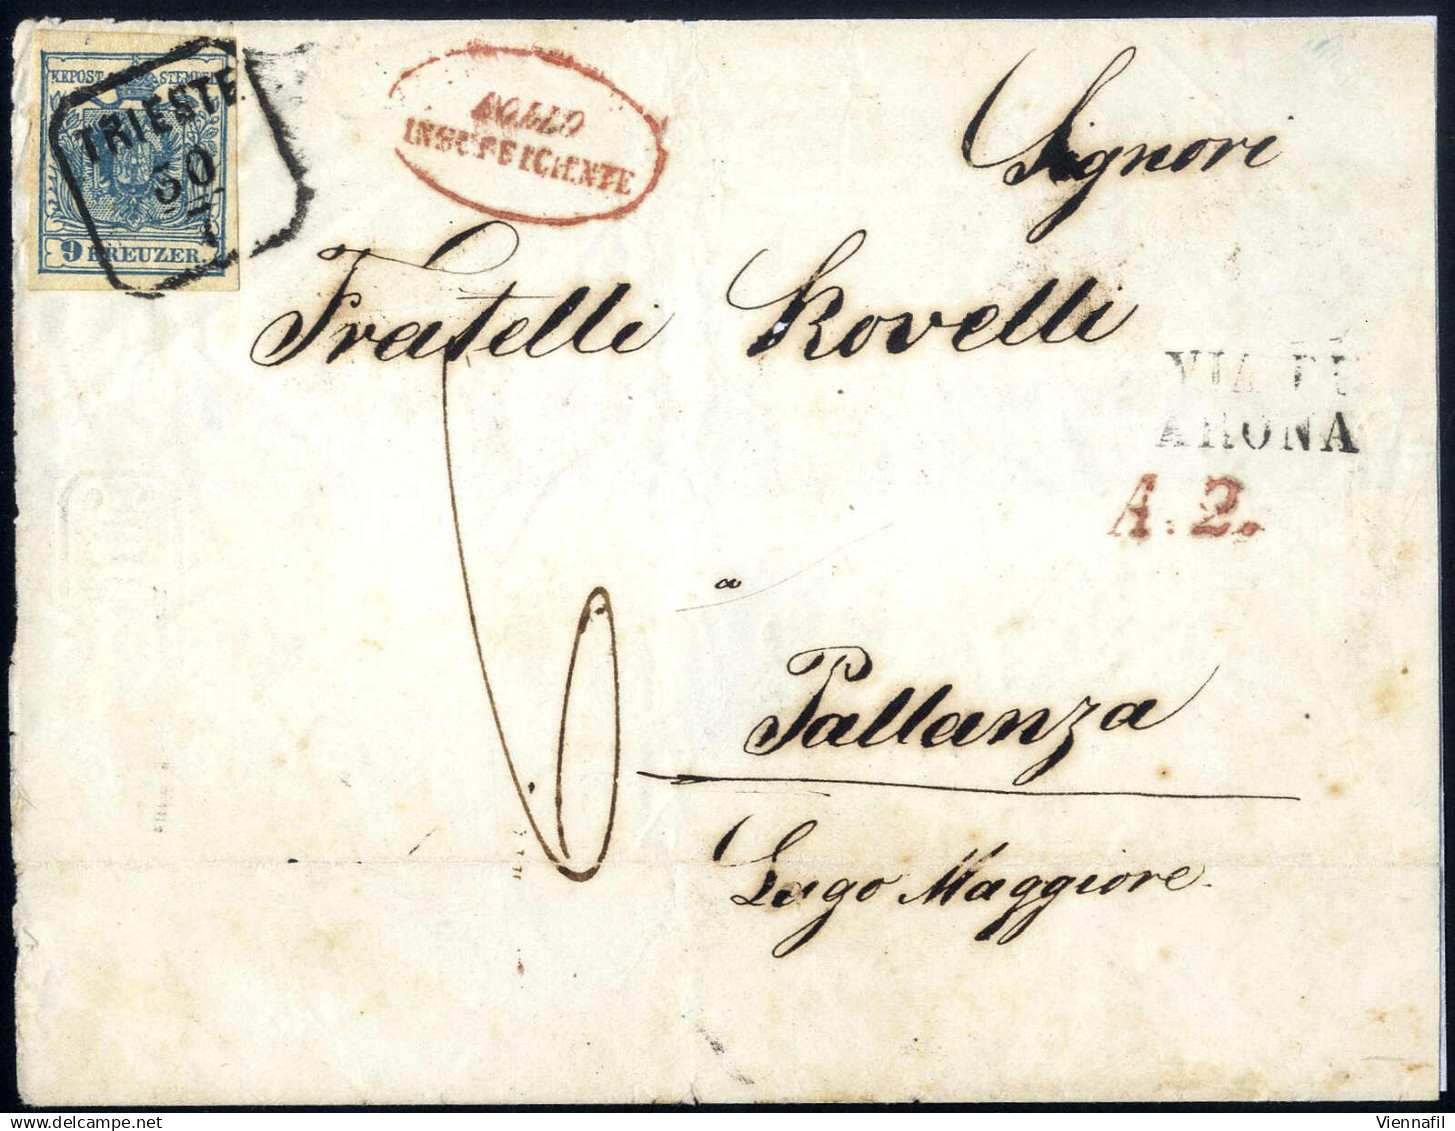 KKPOST STEMPEL
TRIESTE
30
7
9 KREUZER.
BOLLO
INSUFFICIENTE
Signori
Fratelli Rovelli
VIA DI
ARONA
A. 2.
a
Pallanza
Lago Maggiore.
6
Viennafil